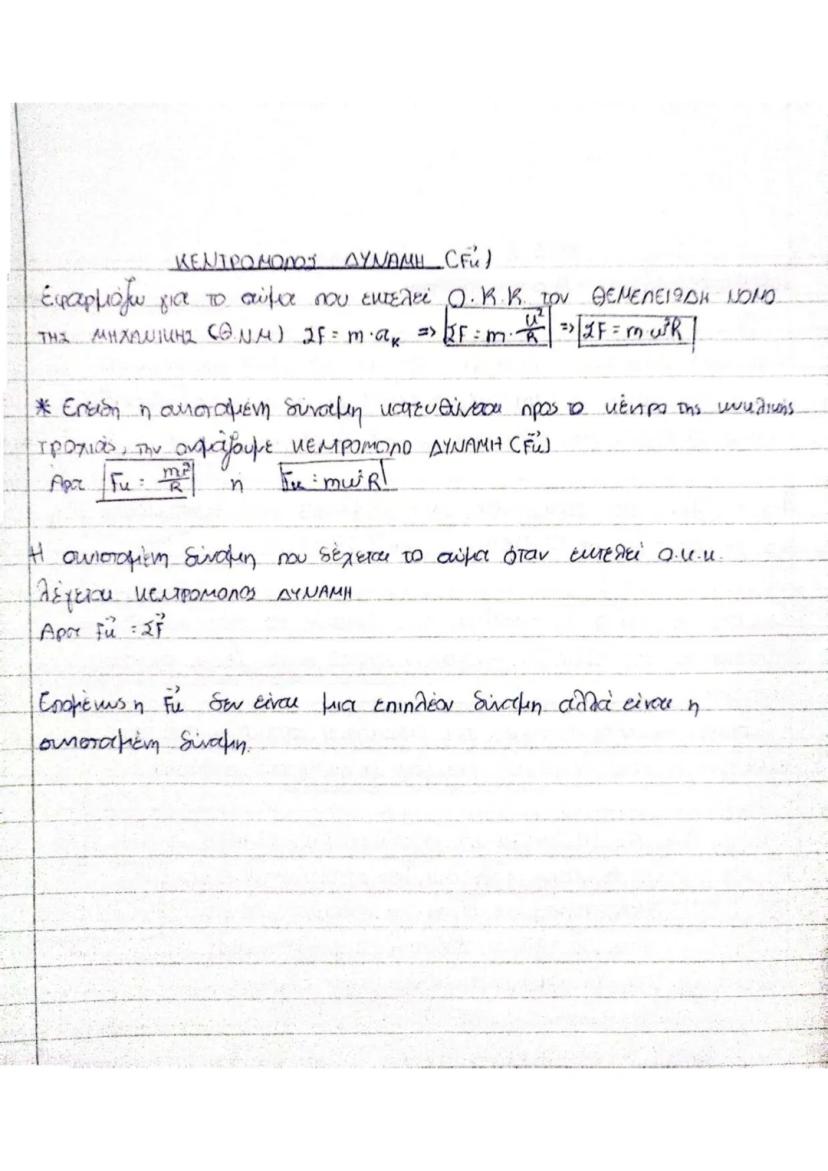 ΚΕΝΤΡΟΜΟΛΟΣ ΔΥΝΑΜΗ (F⃗κ)
Εφαρμόζω για το σώμα που εκτελεί Ο.Κ.Κ. τον ΘΕΜΕΛΕΙΩΔΗ ΝΟΜΟ
ΤΗΣ ΜΗΧΑΝΙΚΗΣ (Θ.Ν.Μ) ΣF = m·aκ => ΣF = m·υ²/R => ΣF = mω²R
* Επειδή η συνισταμένη δύναμη κατευθύνεται προς το κέντρο της κυκλικής
τροχιάς, την ονομάζουμε ΚΕΝΤΡΟΜΟΛΟ ΔΥΝΑΜΗ (F⃗κ)
Αρα Fκ = mυ²/R η Fκ = mω²R
Η συνισταμένη δύναμη που δέχεται το σώμα όταν εκτελεί ο.κ.κ.
λέγεται ΚΕΝΤΡΟΜΟΛΟΣ ΔΥΝΑΜΗ
Αρα F⃗κ = ΣF⃗
Επομένως η F⃗κ δεν είναι μια επιπλέον δύναμη αλλά είναι η
συνισταμένη δύναμη.